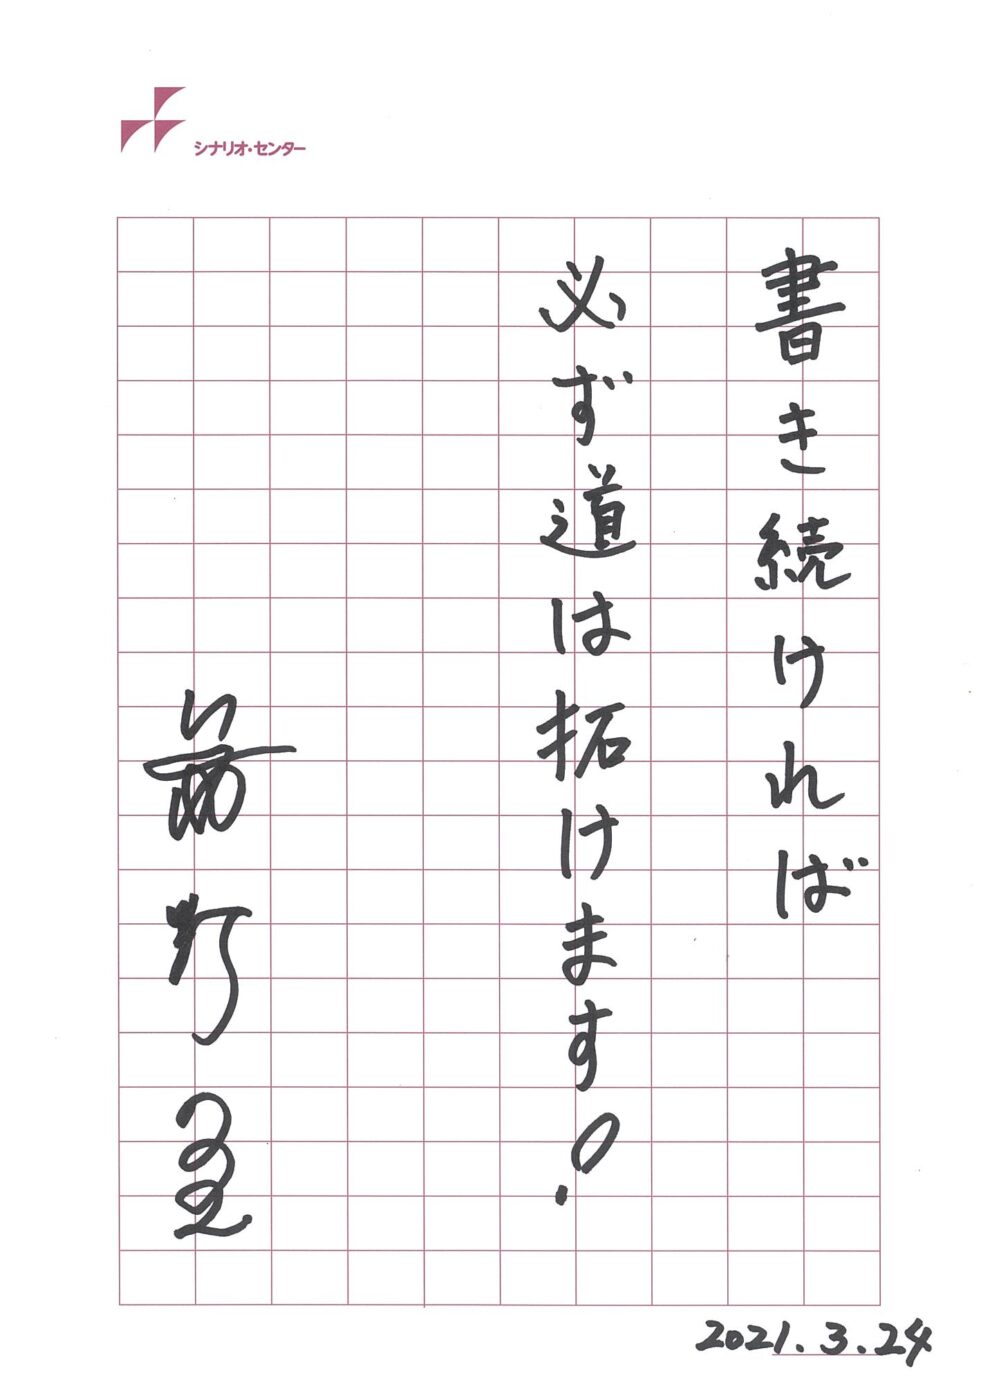 シナリオ・センター
書き続ければ
必ず道は拓けます!
2021.3.24